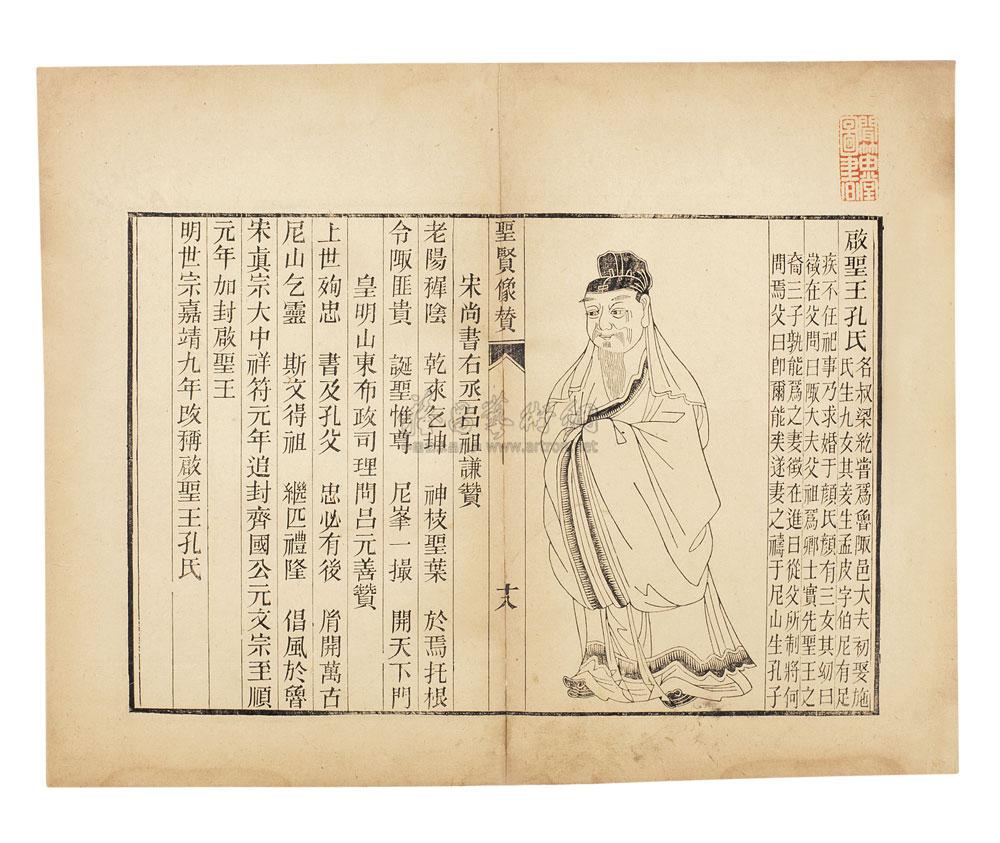 啟聖王孔氏
名叔梁紇嘗爲魯陬邑大夫初娶施
氏生九女其妾生孟皮字伯尼有足
疾不任祀事乃求婚于顏氏顏有三女其幼曰
徵在父問曰陬大夫父祖爲卿士實先聖王之
裔三子孰能爲之妻徵在進曰從父所制將何
問焉父曰即爾能矣遂妻之禱于尼山生孔子
聖賢像贊
十八
宋尚書右丞呂祖謙贊
老陽穉陰 乾來乞坤 神枝聖葉 於焉托根
令陬匪貴 誕聖惟尊 尼峯一撮 開天下門
皇明山東布政司理問呂元善贊
上世殉忠 書及孔父 忠必有後 開萬古
尼山乞靈 斯文得祖 繼匹禮隆 倡風於魯
宋眞宗大中祥符元年追封齊國公元文宗至順
元年加封啟聖王
明世宗嘉靖九年改稱啟聖王孔氏
雅昌藝術網